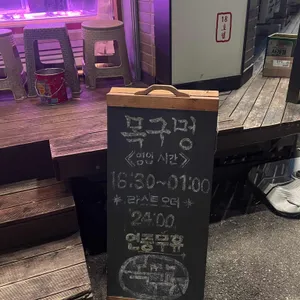 목구멍
《영업시간》
16:30~01:00
*라스트오더*
24:00
연중무휴